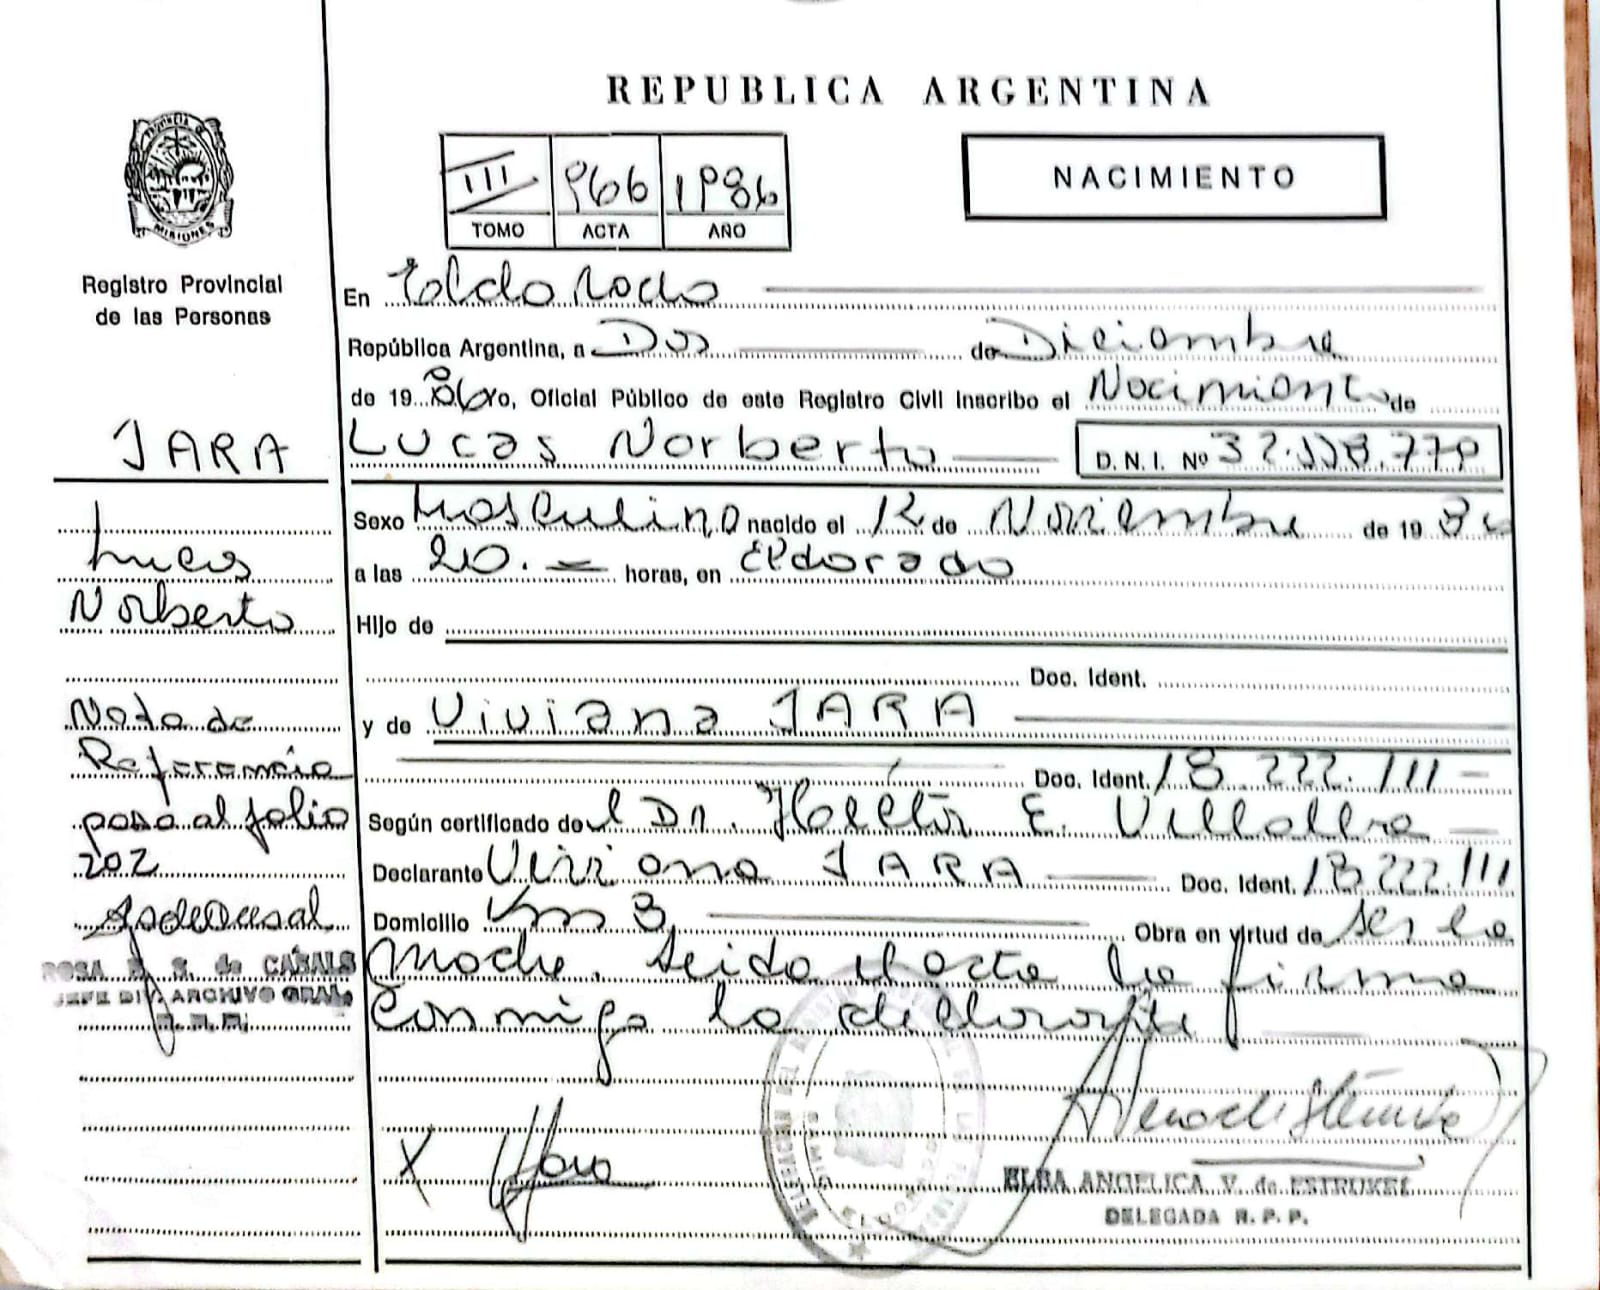 REPUBLICA ARGENTINA
PROVINCIA DE
MISIONES
Registro Provincial
de las Personas
III 966 1986
TOMO ACTA AÑO
NACIMIENTO
En Eldorado
República Argentina, a Dos de Diciembre
de 19 86 Yo, Oficial Público de este Registro Civil Inscribo el Nacimiento de
JARA
Lucas Norberto D. N. I. Nº
Sexo Masculino nacido el 12 de Noviembre de 19 86
a las 20.- horas, en Eldorado
Lucas
Norberto
Hijo de
Doc. Ident.
y de Viviana JARA
Doc. Ident. 18.222.111
Según certificado del Dr. E. Villalba
Declarante Viviana JARA Doc. Ident. 18.222.111
Domicilio Km 3 Obra en virtud de ser la
madre. Leida el acta la firma
conmigo la declarante
Nota de
Referencia
pasa al folio
202
ROSA S. de CAÑALS
JEFE DIV. ARCHIVO GRAL.
ELBA ANGELICA V. de ESTRUKEL
DELEGADA R. P. P.